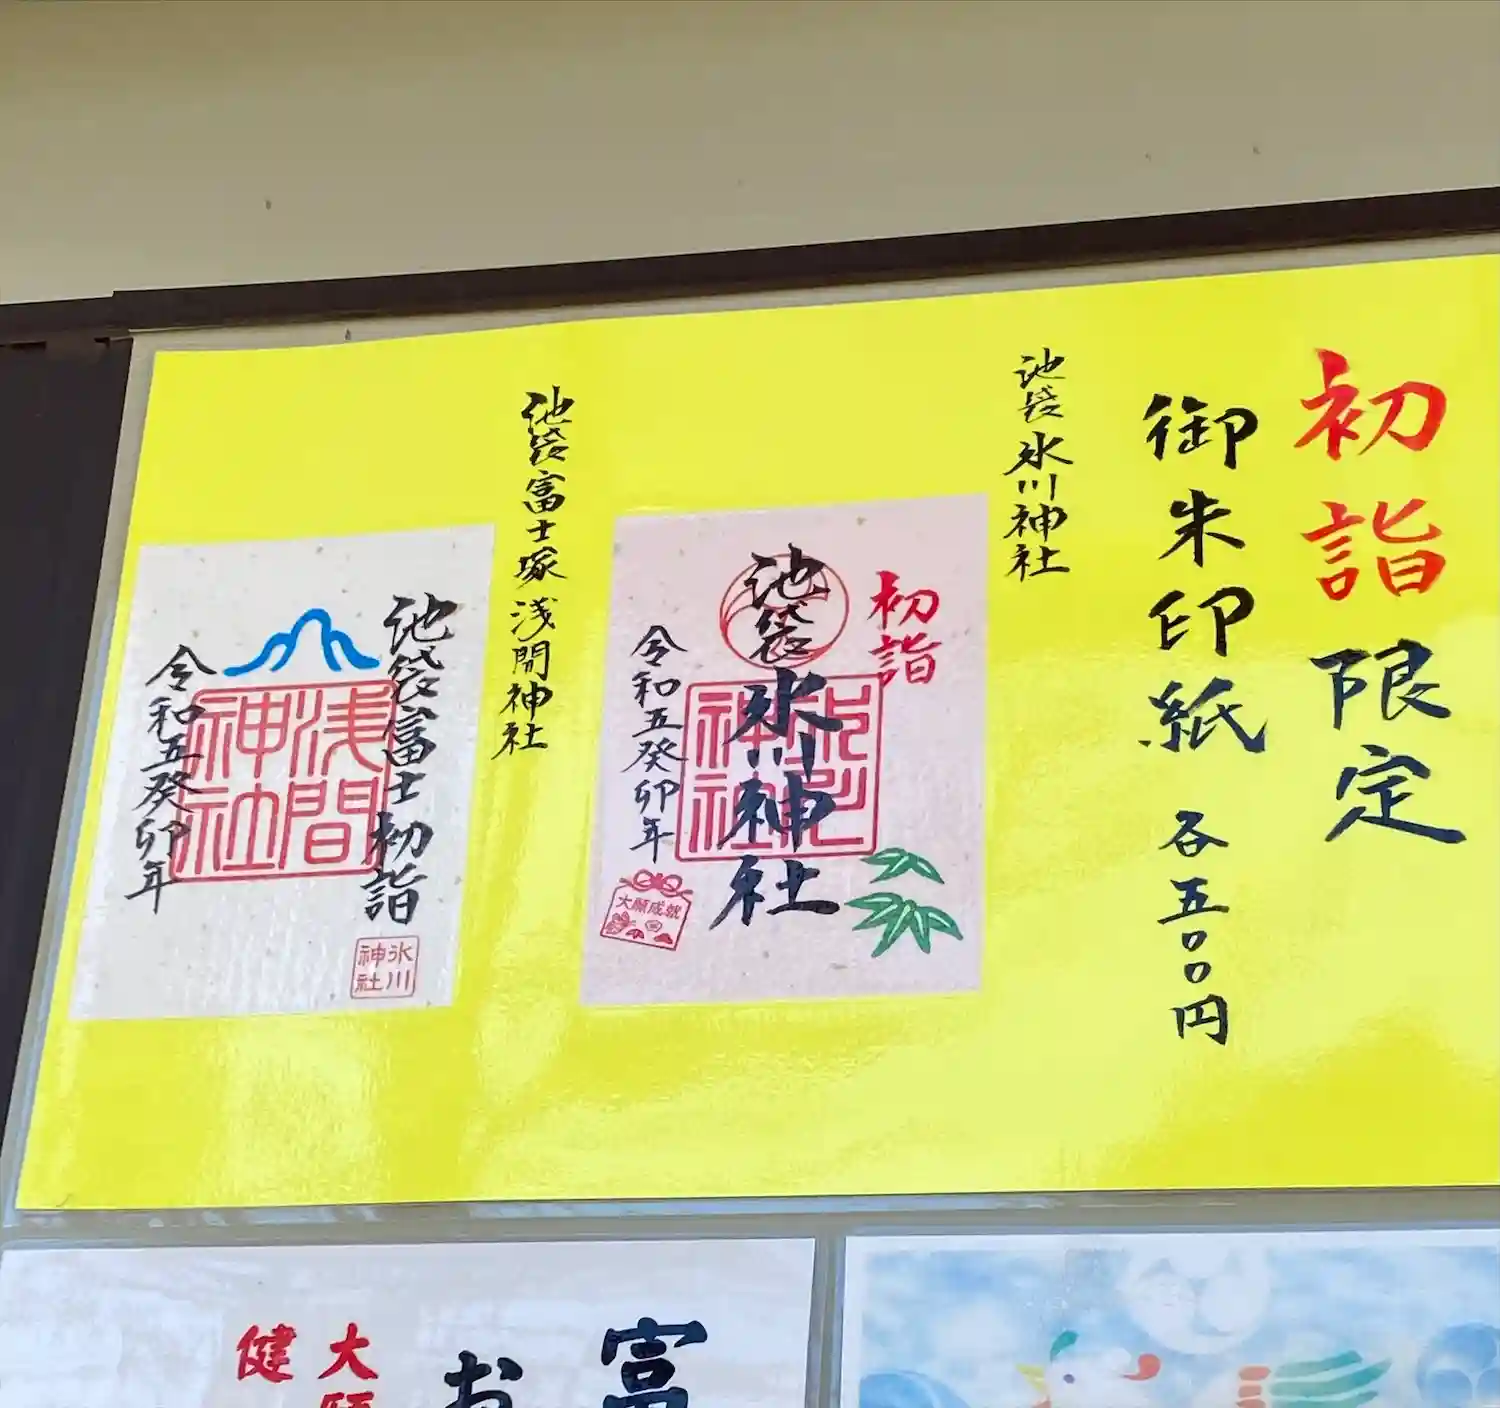 初詣限定
御朱印紙 各五〇〇円
池袋氷川神社
初詣
池袋氷川神社
令和五癸卯年
大願成就
池袋富士塚浅間神社
池袋富士初詣
浅間神社
令和五癸卯年
氷川神社
富
お
大願
健